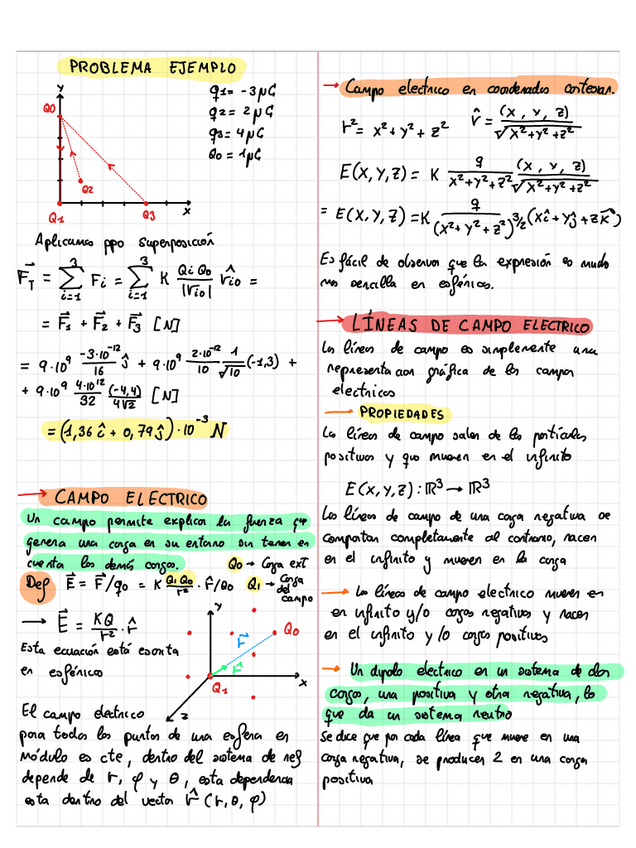 PROBLEMA EJEMPLO
y
q1 = -3 μC
q2 = 2 μC
q3 = 4 μC
Q0 = 1 μC
Q0
Q2
Q1
Q3
x
Aplicamos ppo superposición
F⃗_T = Σ_{i=1}^{3} Fi = Σ_{i=1}^{3} K Qi Q0 / |rio| r̂io =
= F⃗1 + F⃗2 + F⃗3 [N]
= 9·10^9 (-3·10^-12)/16 ĵ + 9·10^9 (2·10^-12)/10 1/√10 (-1,3) +
+ 9·10^9 (4·10^12)/32 (-4,4)/(4√2) [N]
= (1,36 î + 0,79 ĵ)·10^-3 N
→ CAMPO ELECTRICO
Un campo permite explicar la fuerza que
genera una carga en su entorno sin tener en
cuenta las demás cargas.
Q0 → Carga ext
Def E⃗ = F⃗/q0 = K Q1 Q0 / r² · r̂/Q0
Q1 → Carga del campo
→ E⃗ = KQ/r² · r̂
Esta ecuación está escrita
en esféricas
y
Q0
r⃗
r̂
Q1
x
z
El campo electrico
para todos los puntos de una esfera en
módulo es cte, dentro del sistema de ref
depende de r, φ y θ, esta dependencia
esta dentro del vector r̂ (r, θ, φ)
→ Campo electrico en coordenadas cartesianas.
r² = x² + y² + z²
r̂ = (x, y, z)/√(x²+y²+z²)
E(x,y,z) = K q/(x²+y²+z²) (x, y, z)/√(x²+y²+z²)
= E(x,y,z) = K q/(x²+y²+z²)^3/2 (xî + yĵ + zk̂)
Es fácil de observar que la expresión es mucho
mas sencilla en esféricas.
→ LÍNEAS DE CAMPO ELECTRICO
Las lineas de campo es simplemente una
representacion gráfica de los campos
electricos
→ PROPIEDADES
Las lineas de campo salen de las partículas
positivas y que mueren en el infinito
E(x,y,z) : ℝ³ → ℝ³
Las líneas de campo de una carga negativa se
comportan completamente al contrario, nacen
en el infinito y mueren en la carga
→ Las líneas de campo electrico mueren en
en infinito y/o cargas negativas y nacen
en el infinito y/o cargas positivas
→ Un dipolo electrico en un sistema de dos
cargas, una positiva y otra negativa, lo
que da un sistema neutro
Se dice que por cada línea que muere en una
carga negativa, se producen 2 en una carga
positiva